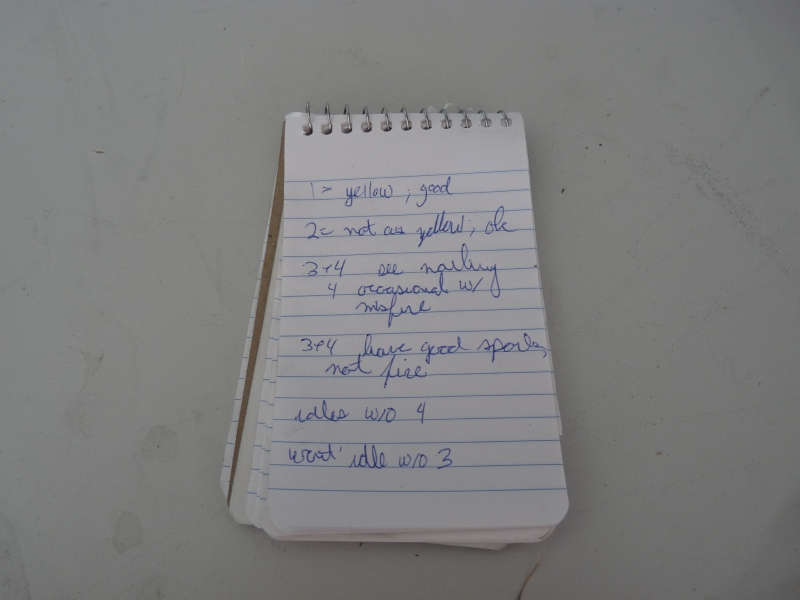 1= yellow ; good
2= not as yellow ; ok
3+4 see nothing
4 occasional w/
misfire
3+4 have good spark,
not fire
idles w/o 4
wont' idle w/o 3